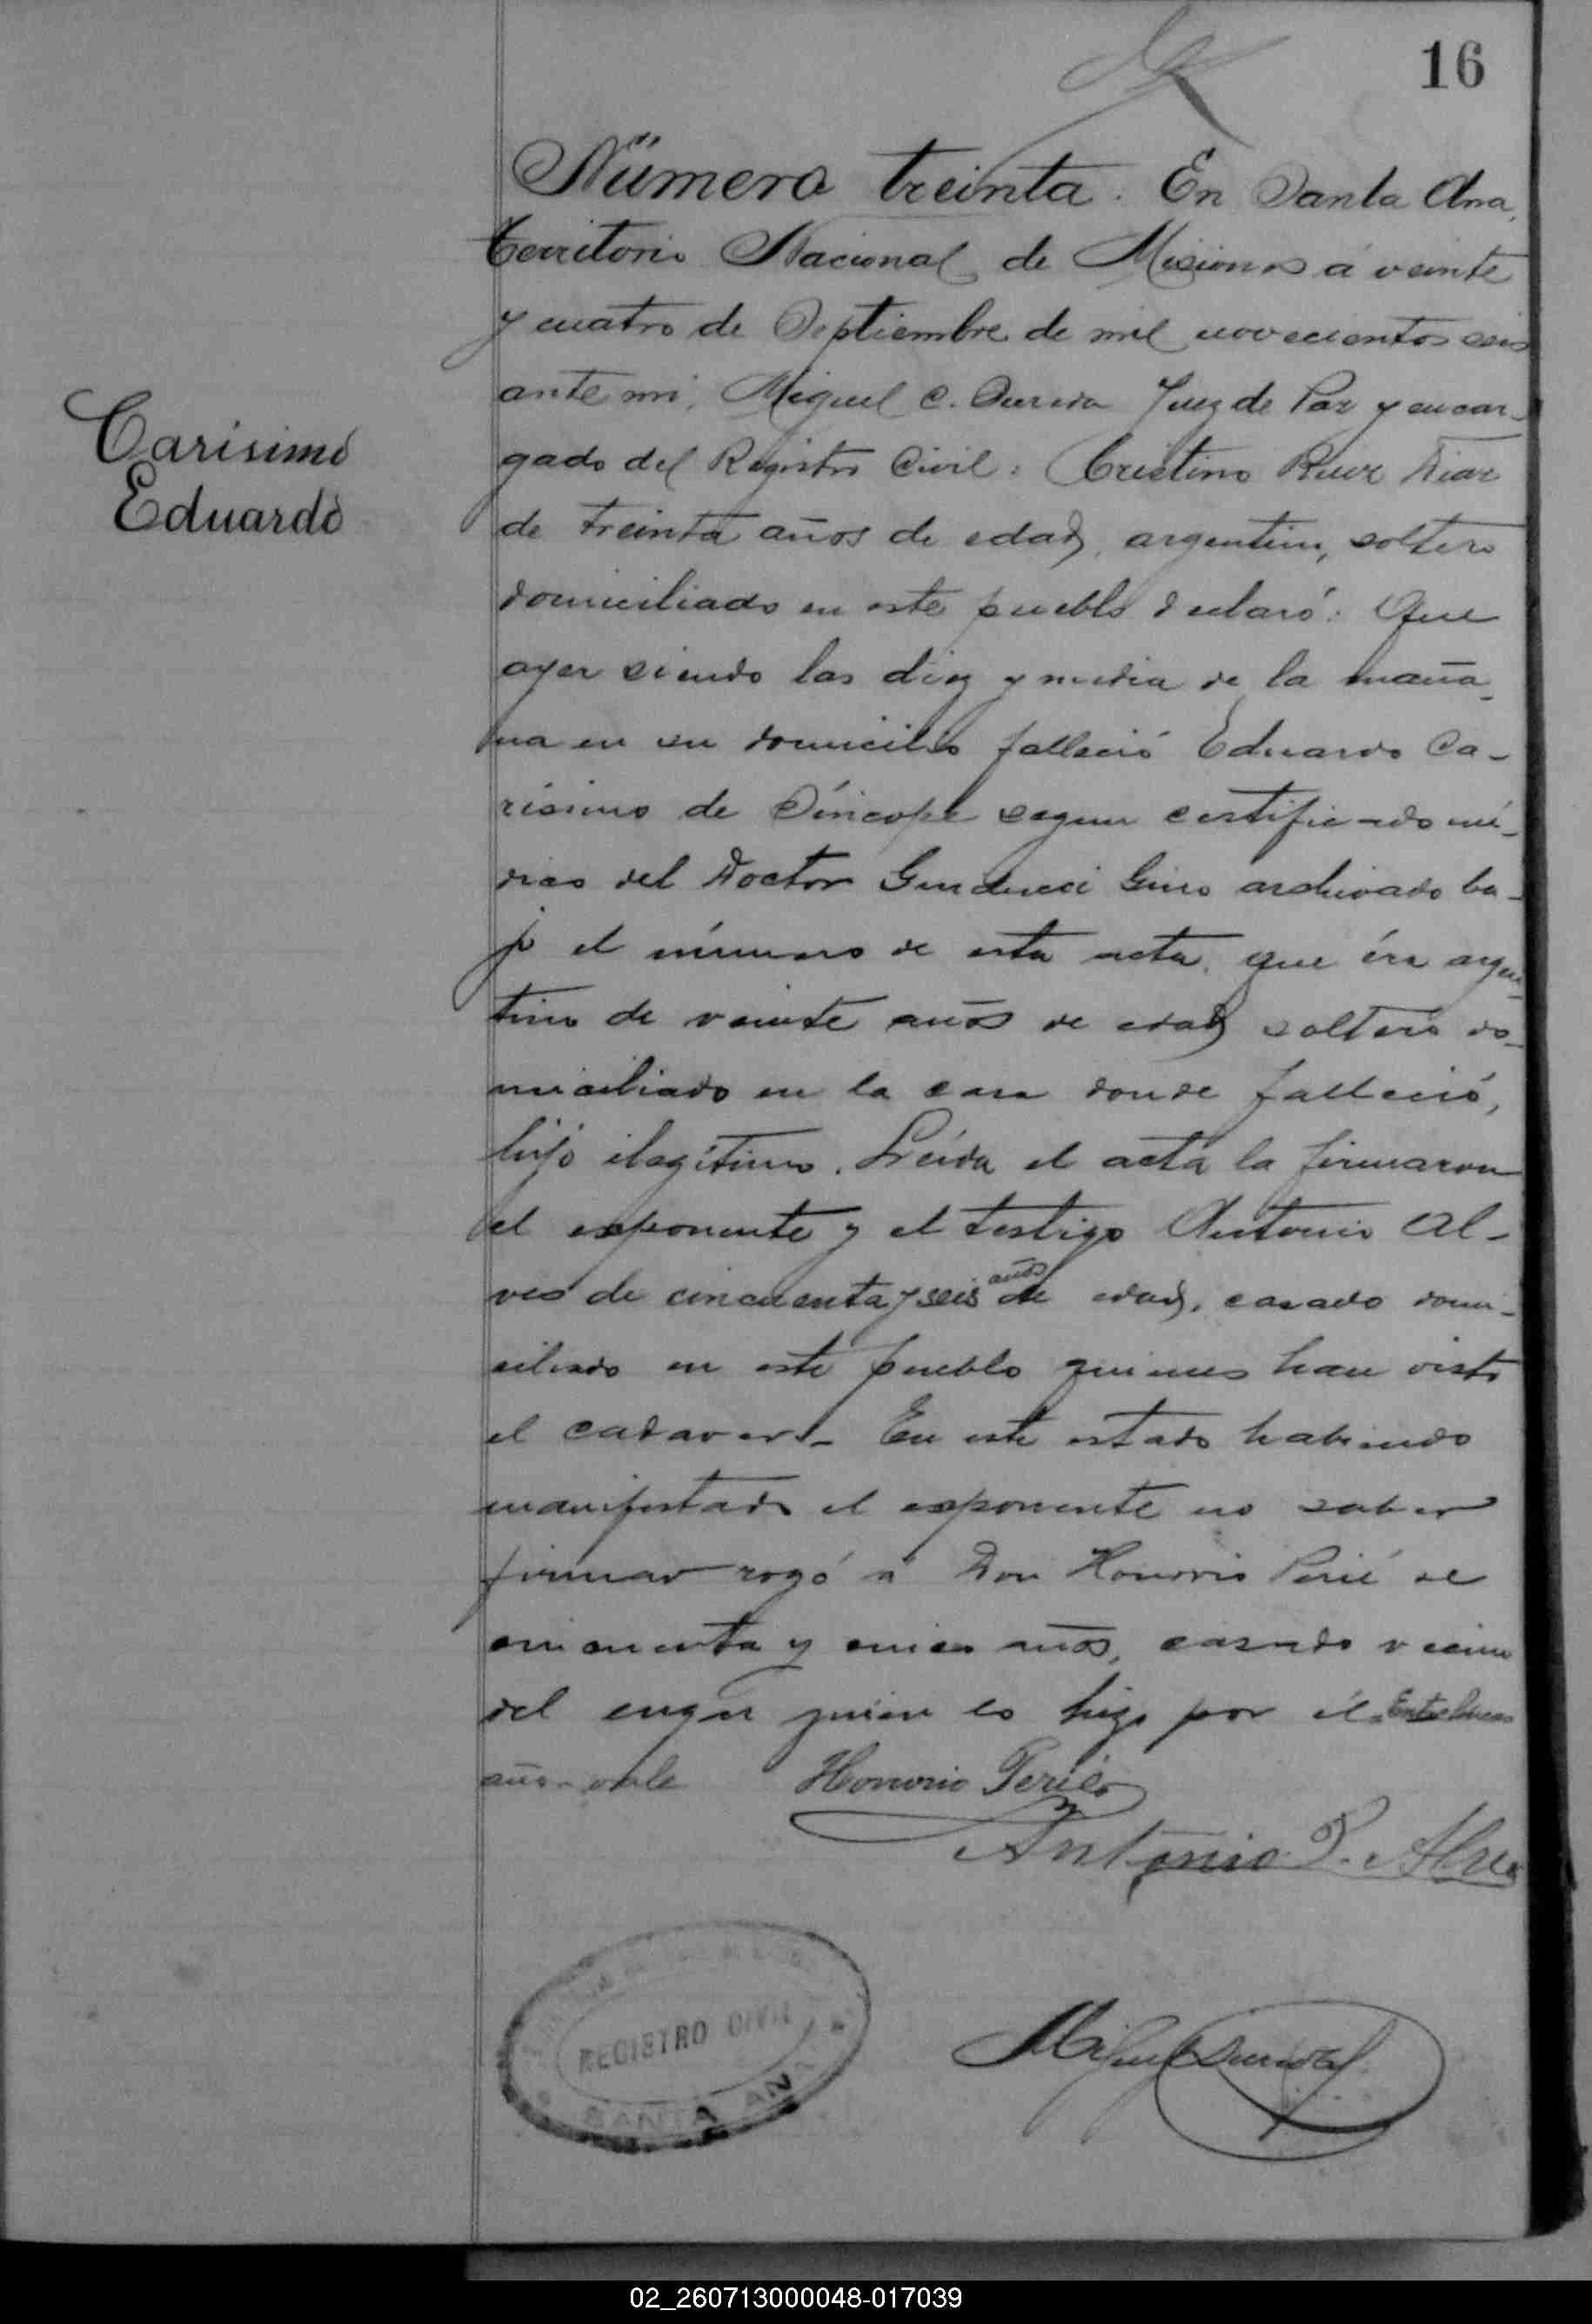 16
Número treinta. En Santa Ana,
Territorio Nacional de Misiones á veinte
y cuatro de Septiembre de mil novecientos seis
ante mi, Miguel C. Juez de Paz y encar-
gado del Registro Civil: Cristino Ruiz Diaz
Carisimo
Eduardo
de treinta años de edad, argentino, soltero
domiciliado en este pueblo declaró: Que
ayer siendo las diez y media de la maña-
na en su domicilio falleció Eduardo Ca-
risimo de Síncope segun certificado mé-
dico del Doctor Gino archivado ba-
jo el número de esta acta, que éra argen-
tino de veinte años de edad soltero do-
miciliado en la casa donde falleció,
hijo ilegítimo. Leída el acta la firmaron
el exponente y el testigo Antonio Al-
ves de cincuenta y seis años de edad, casado domi-
ciliado en este pueblo quienes han visto
el cadaver. En este estado habiendo
manifestado el exponente no saber
firmar rogó a Don Honorio Perié de
cincuenta y cinco años, casado vecino
del lugar quien lo hizo por él. Entre lineas
años vale Honorio Perié
Antonio P. Alves
REGISTRO CIVIL
SANTA ANA
Miguel
02_260713000048-017039